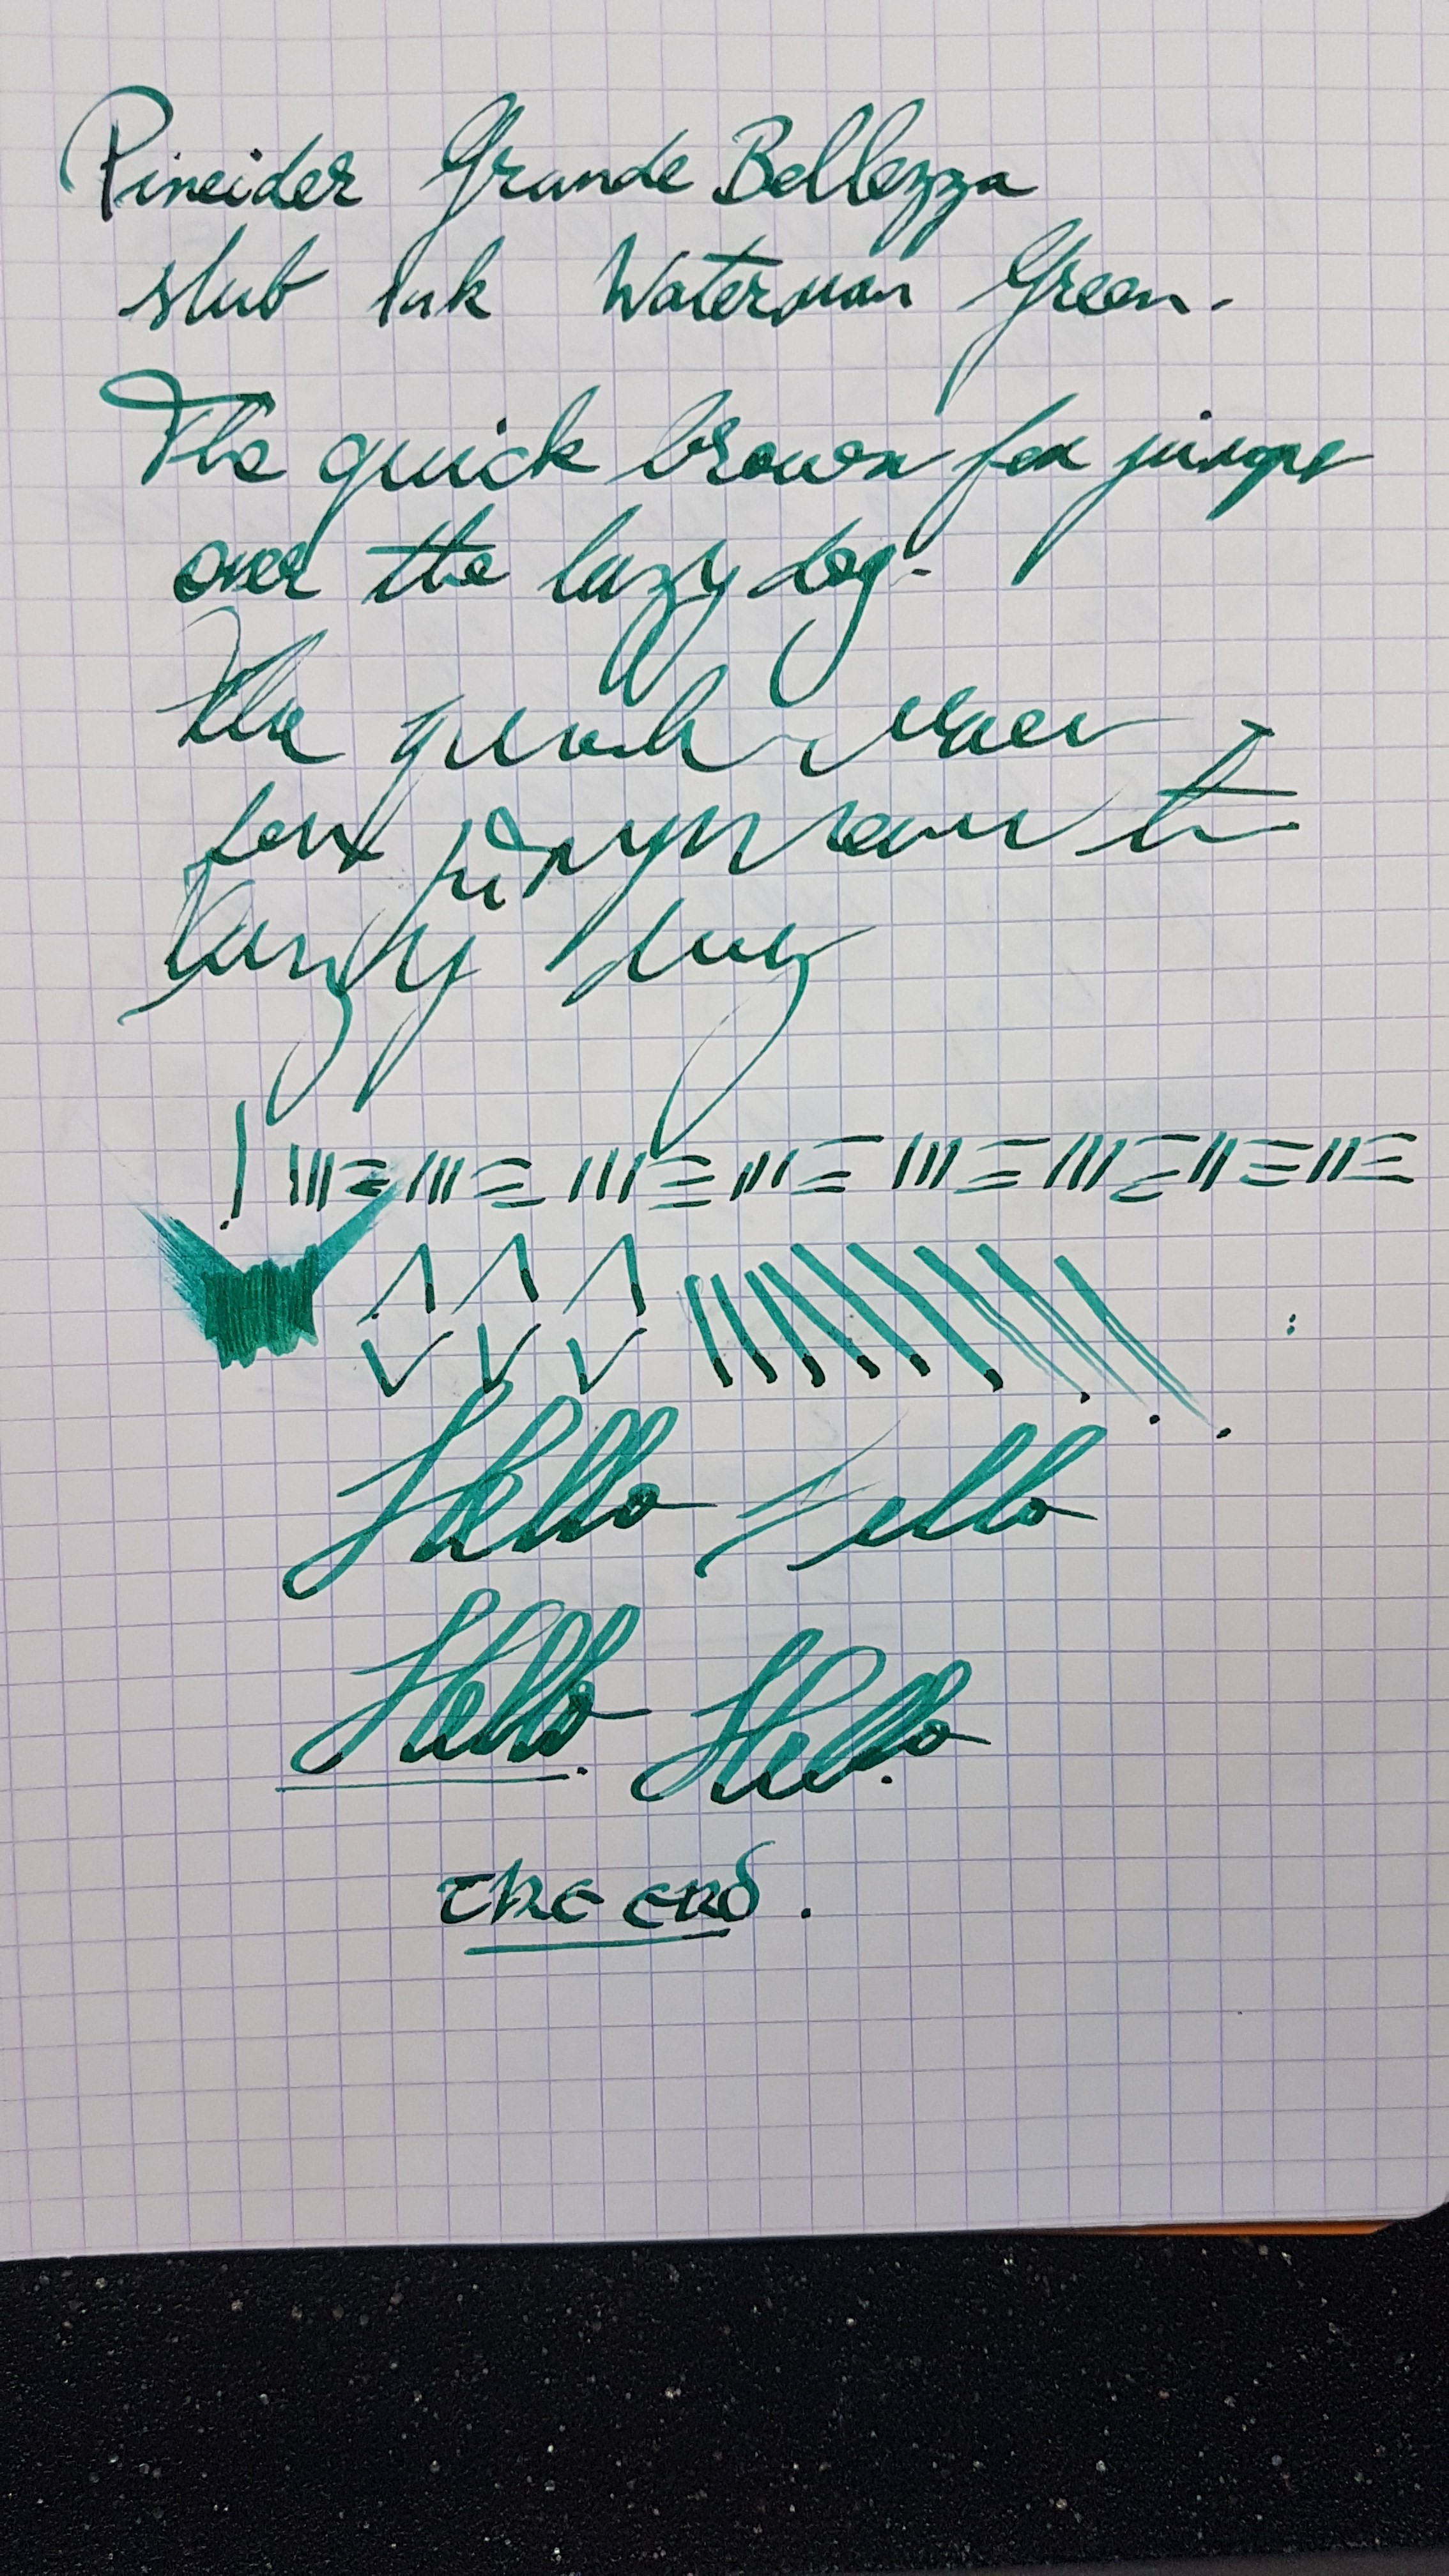 Pineider Grande Bellezza
stub Ink Waterman Green.
The quick brown fox jumps
over the lazy dog.
The quick
fox jumps over the
lazy dog
Hello Hello
Hello. Hello.
the end.